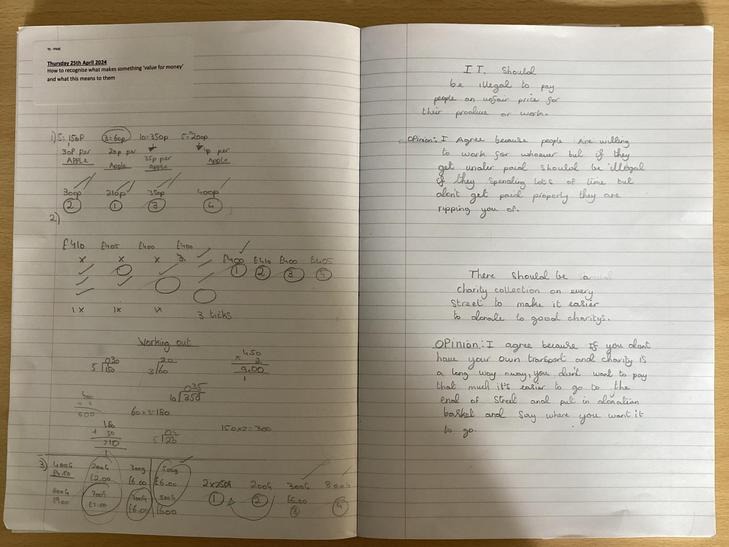 Thursday 25th April 2024
How to recognise what makes something 'value for money'
and what this means to them
1) 5: 150P 3=60p 10=350p 5=200p
30P per 20p per 35p per p per
APPLE Apple Apple Apple
300p 210p 350p 400p
2 1 3 4
2)
£410 £405 £400 £400
x x x
£400 £410 £400 £405
1 2 3
1x 1x 3 ticks
Working out
030 20 450
5 150 3 60 x 2
9.00
035
10 350
600
60x3=180 150x2=300
180
+ 30
210
3) 400G 200G 300g 500g
£4.50 £2.00 £6.00 £6.00 2x250g 200G 300G 800G
800G 700G £6.00
900 £7.00 £6.00 600 1 2 3 4
IT. Should
be illegal to pay
people an unfair price for
their produce or work.
Opinion: I Agree because people are willing
to work for whoever but if they
get under paid should be illegal
if they spending lots of time but
don't get paid properly they are
ripping you of.
There should be a
charity collection on every
street to make it easier
to donate to good charitys.
OPinion: I agree because if you dont
have your own transport and charity is
a long way away, you don't want to pay
that much it's easier to go to the
end of street and put in donation
basket and say where you want it
to go.